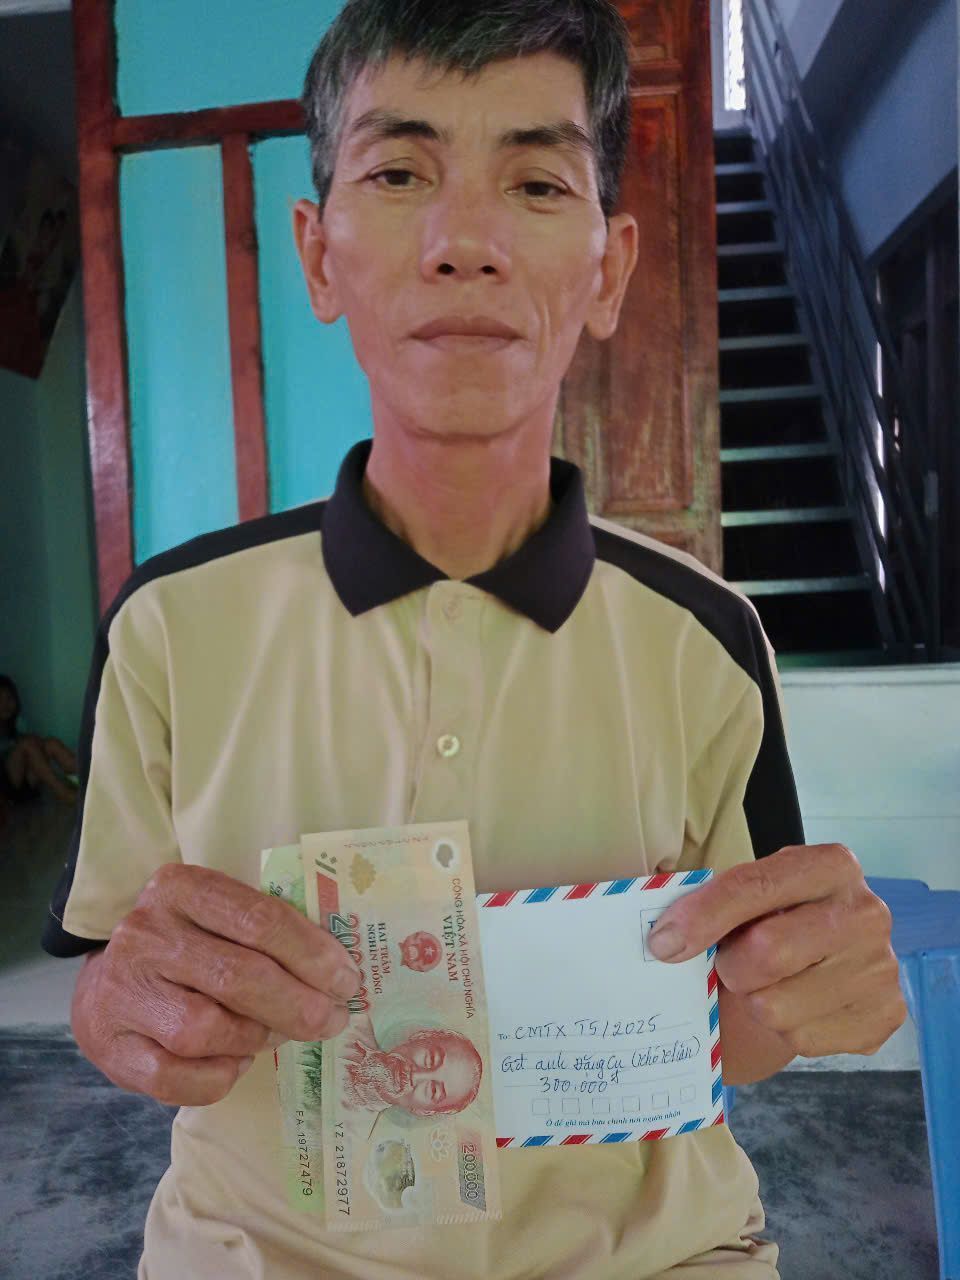 CỘNG HÒA XÃ HỘI CHỦ NGHĨA
VIỆT NAM
HAI TRĂM
NGHÌN ĐỒNG
200.000
YZ 21872977
FA 19727479
To: CMTX T5/2025
Gđ anh Đặng Cu (khó khăn)
300.000đ
Ô để ghi mã bưu chính nơi người nhận